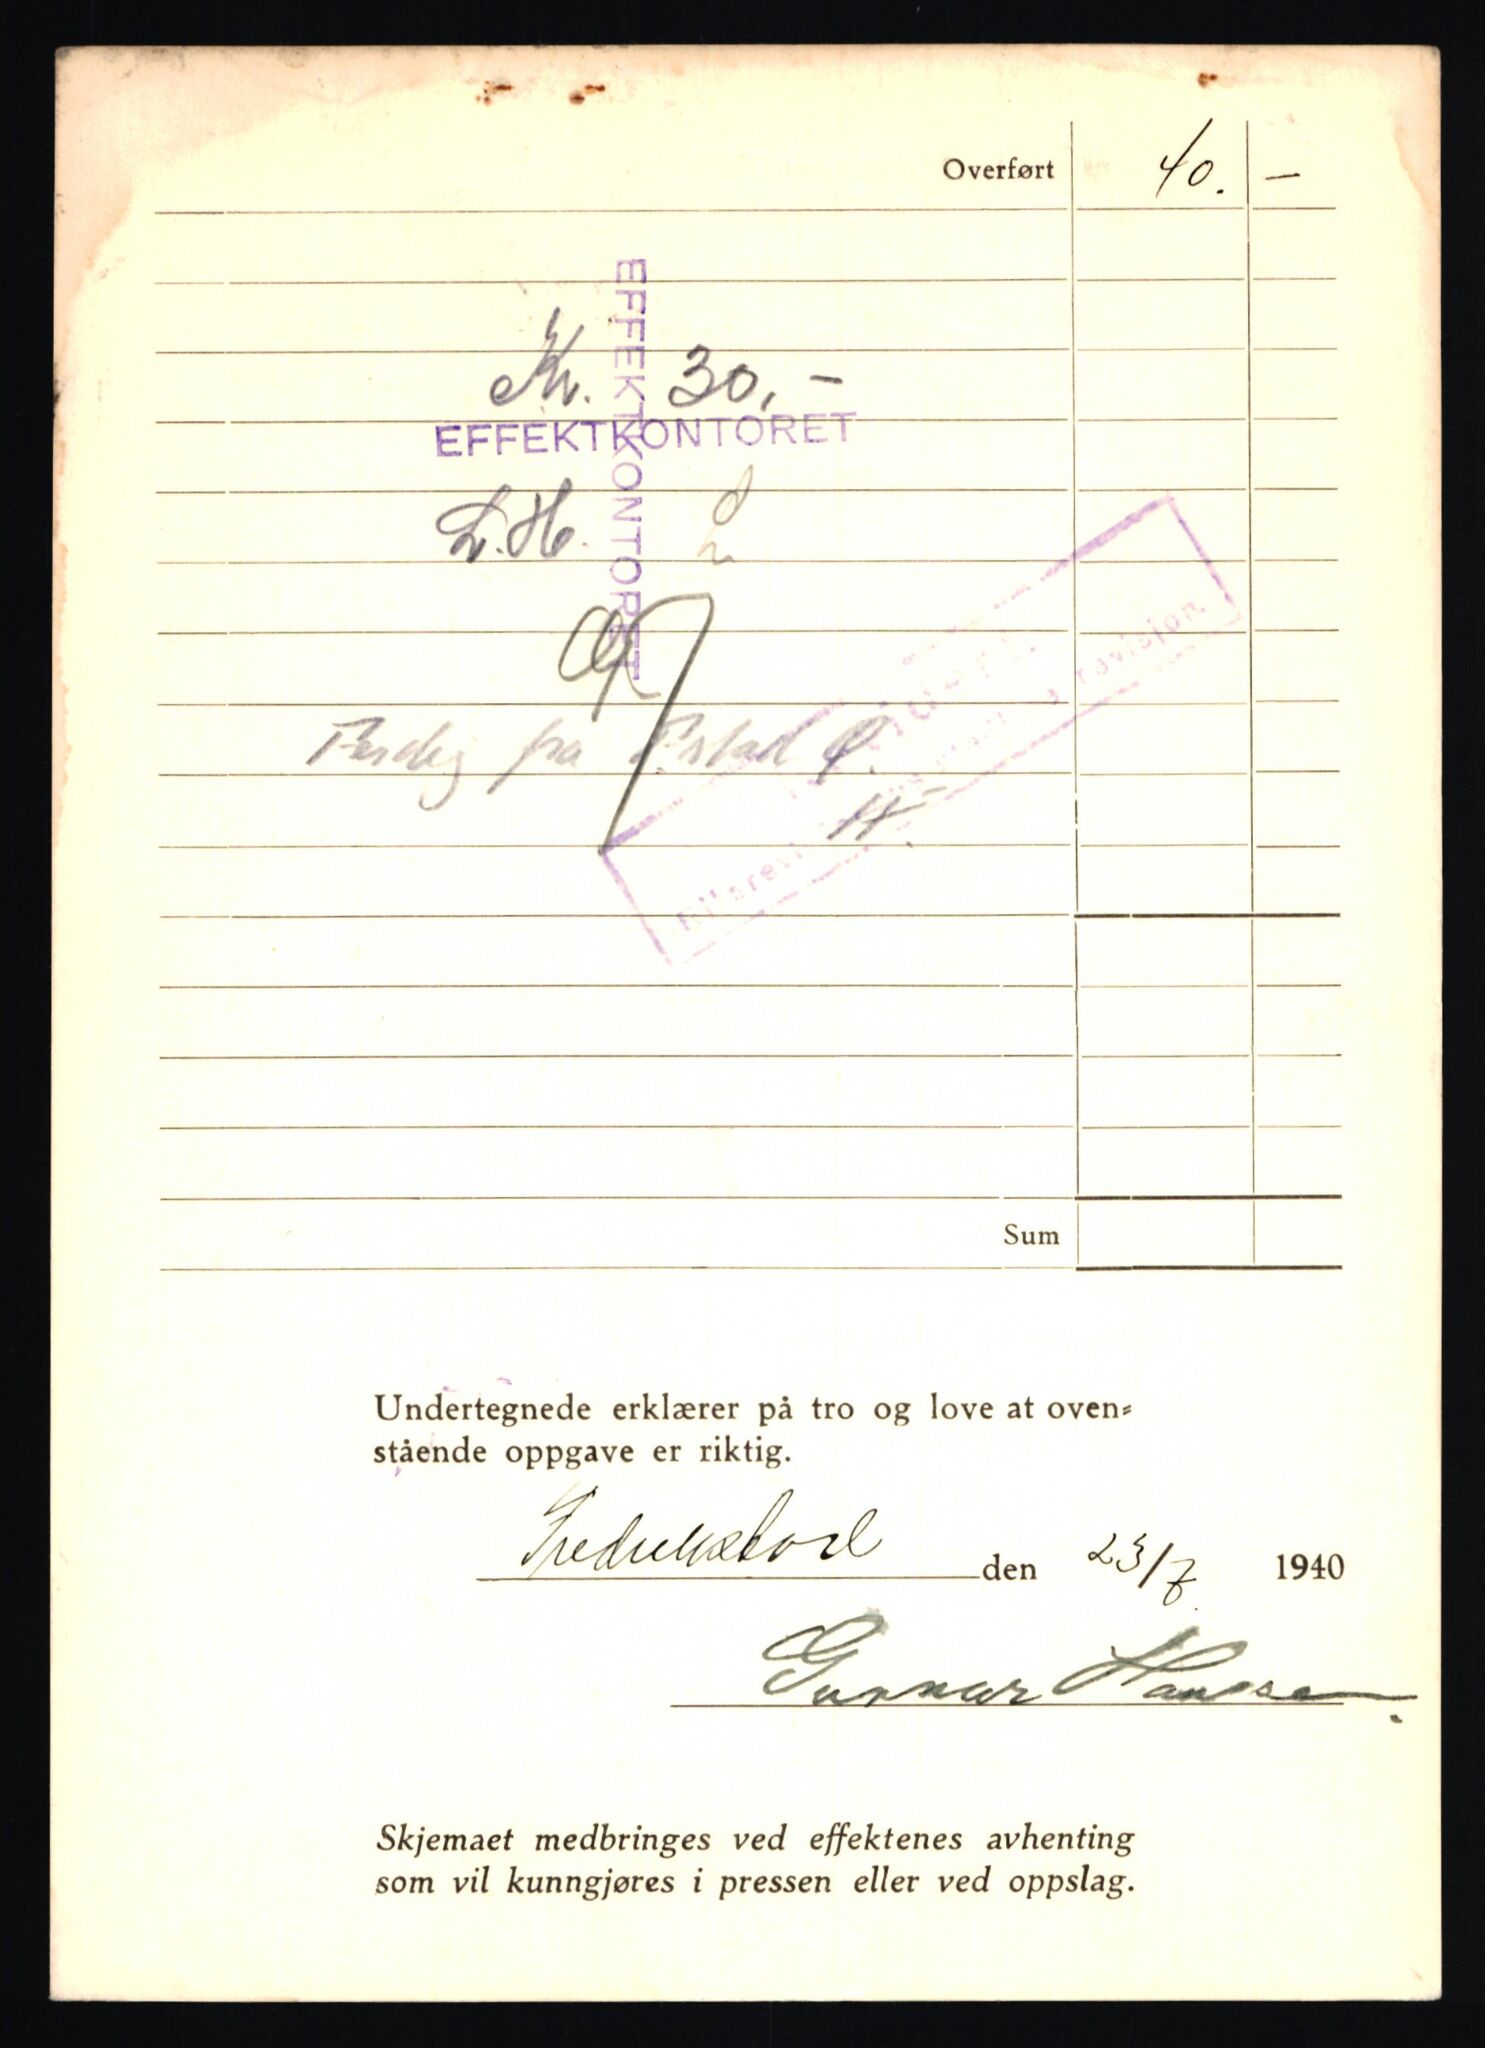 Overført 40. —
EFFEKTKONTORET
Kr. 30,-
EFFEKTKONTORET
L.H.
fra
revisjon.
Sum
Undertegnede erklærer på tro og love at oven-
stående oppgave er riktig.
Fredrikstad den 23/7 1940
Gunnar Hansen.
Skjemaet medbringes ved effektenes avhenting
som vil kunngjøres i pressen eller ved oppslag.